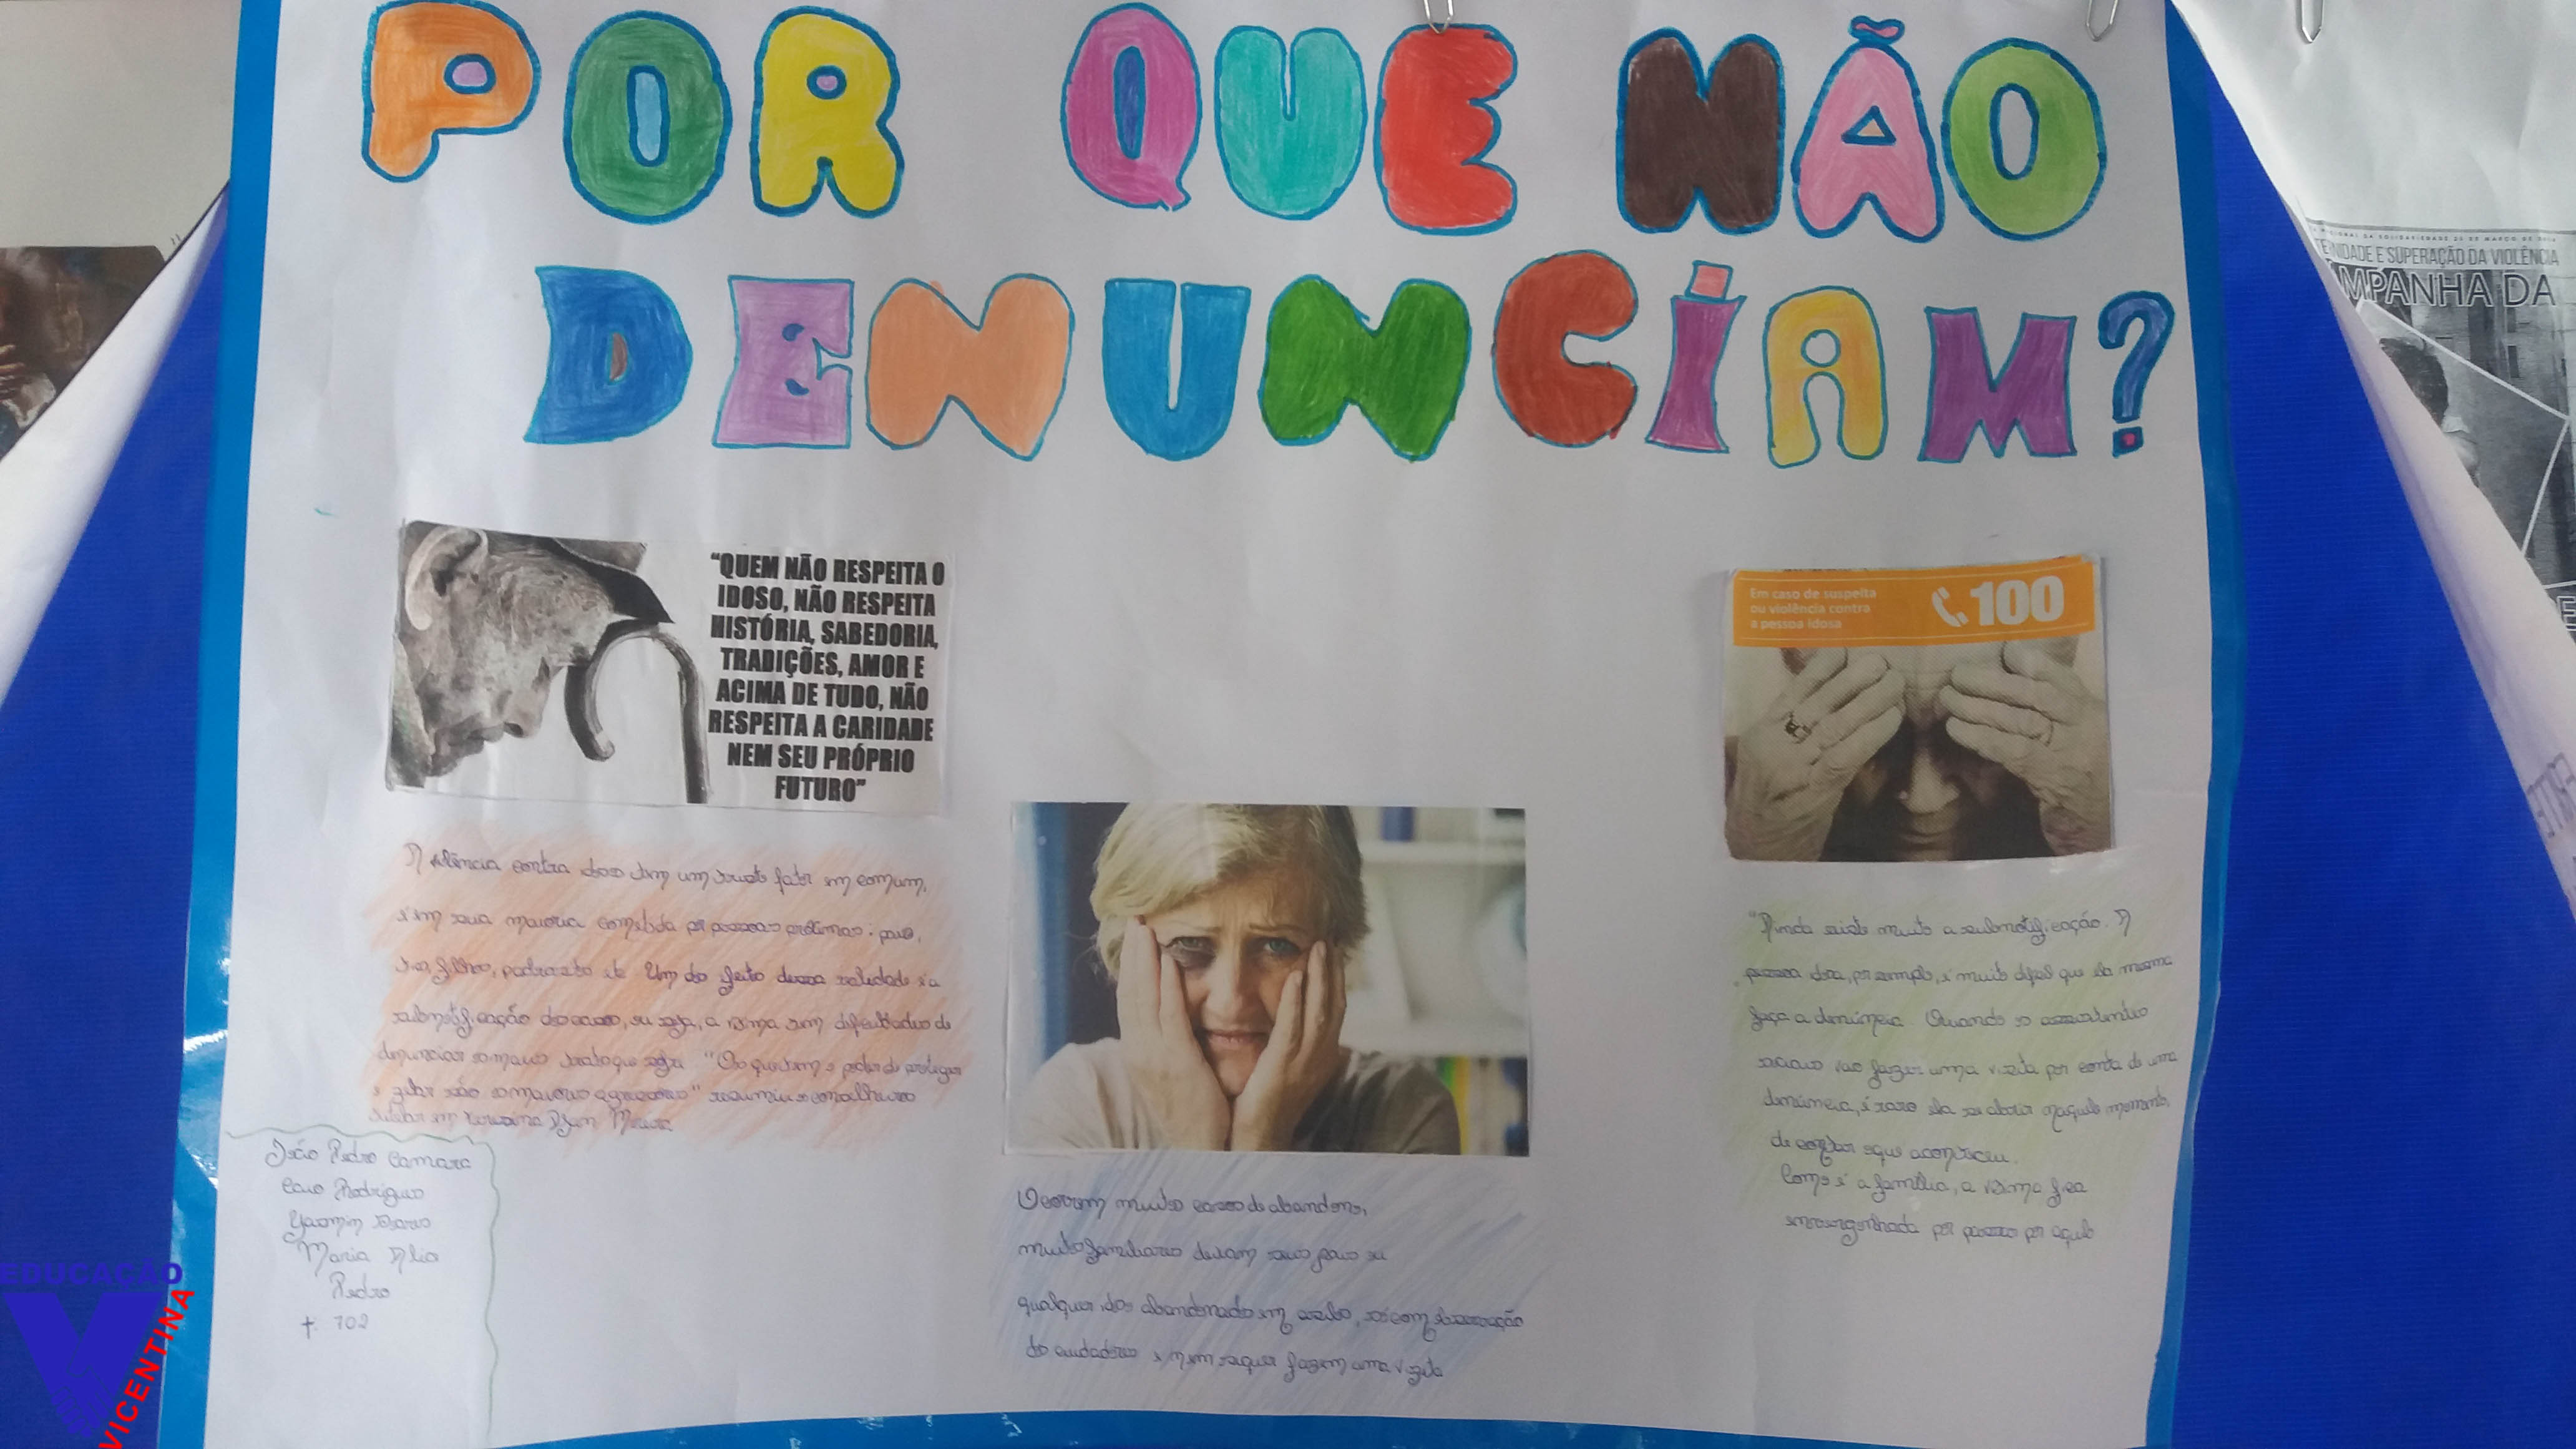 POR QUE NÃO
DENUNCIAM?
"QUEM NÃO RESPEITA O
IDOSO, NÃO RESPEITA
HISTÓRIA, SABEDORIA,
TRADIÇÕES, AMOR E
ACIMA DE TUDO, NÃO
RESPEITA A CARIDADE
NEM SEU PRÓPRIO
FUTURO"
Em caso de suspeita
ou violência contra
a pessoa idosa
100
A violência contra idoso tem um triste fator em comum,
é em sua maioria cometida por pessoas próximas: pais,
filhos, padrasto etc Um do feito dessa realidade é a
subnotificação dos casos, ou seja, a vítima tem dificuldades de
denunciar os maus tratos que sofre "Os que tem o poder de proteger
e zelar são os maiores agressores" resumiu o conselheiro
tutelar em Teresina Djan Moura
João Pedro Camara
Caio Rodrigues
Yasmin
Maria
Pedro
t. 702
Ocorrem muitos casos de abandono,
muitos familiares deixam seus pais ou
qualquer idoso abandonado em asilo, só com observação
do cuidadores e nem sequer fazem uma visita
"Ainda existe muito a subnotificação. A
pessoa idosa, por exemplo, é muito difícil que ela mesma
faça a denúncia. Quando os assistentes
sociais vão fazer uma visita por conta de uma
denúncia, é raro ela se abrir naquele momento,
de contar o que aconteceu.
Como é a família, a vítima fica
envergonhada por passar por aquilo
TERNIDADE E SUPERAÇÃO DA VIOLÊNCIA
MPANHA DA
EDUCAÇÃO
VICENTINA